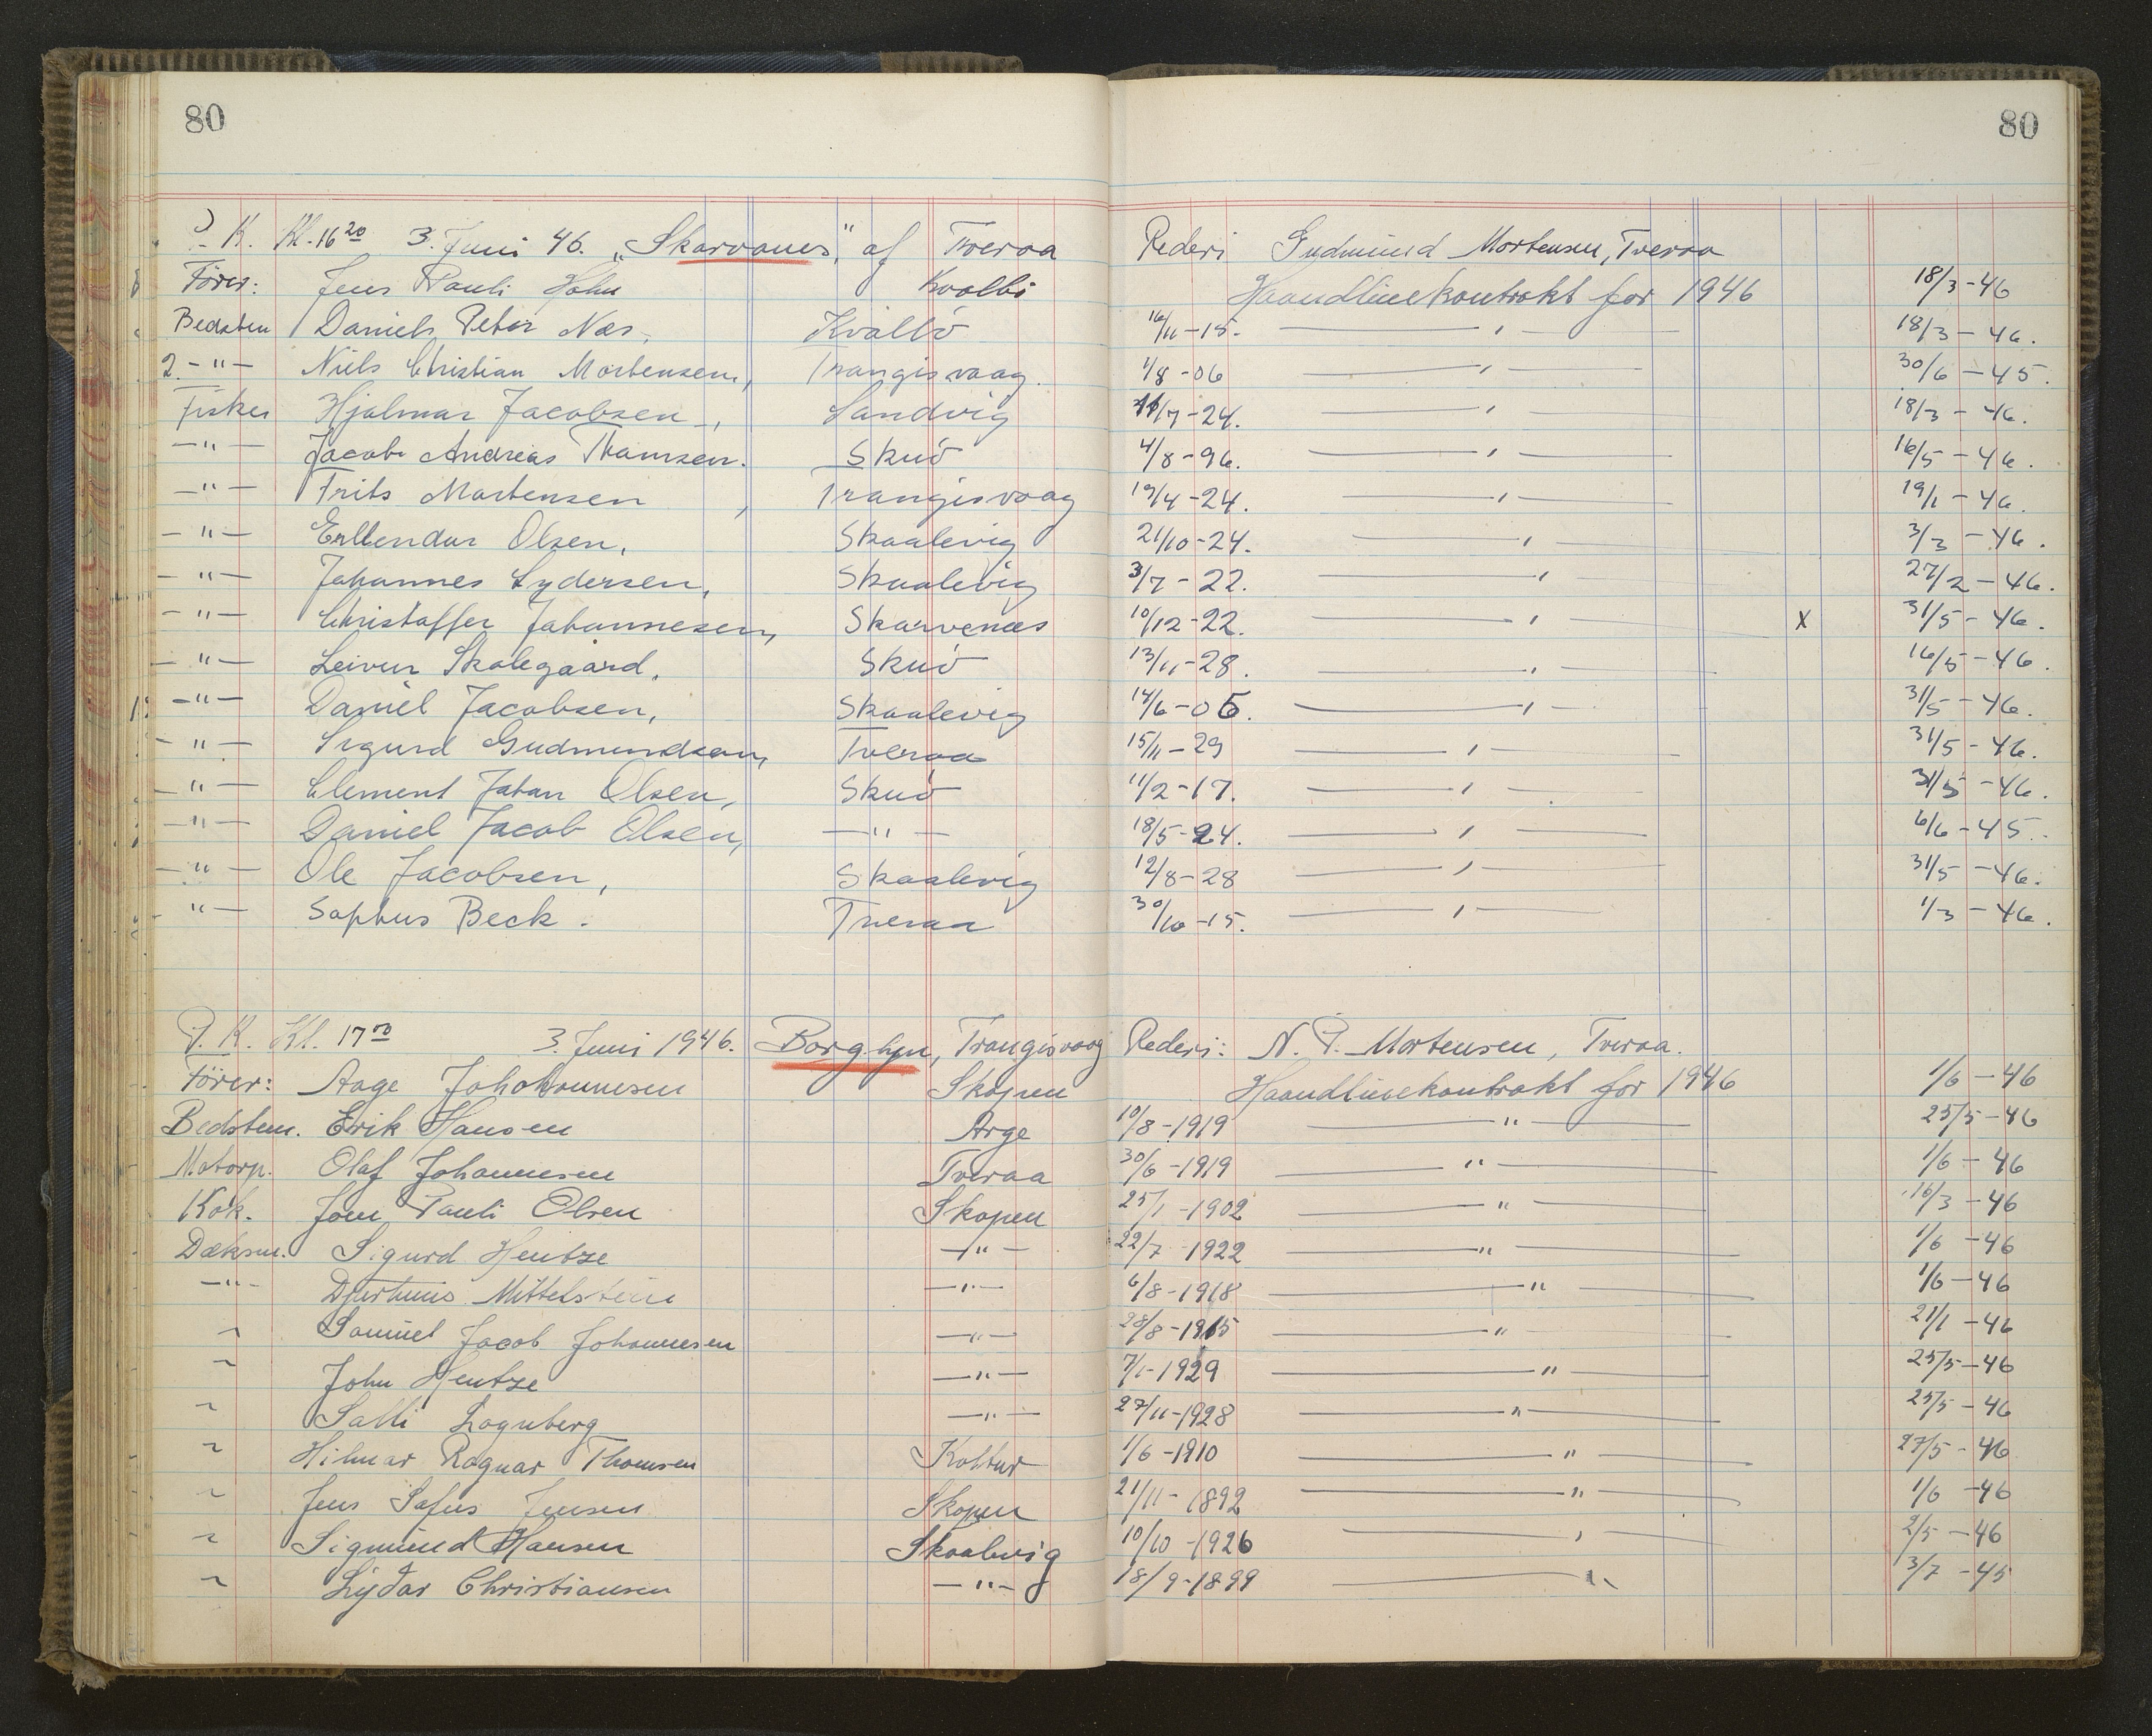 80
80
P. K. Kl. 16 20 3. Juni 46. „Skarvanes“ af Tveraa Rederi Gudmund Mortensen, Tveraa
Förer: Jens Pauli Hohn Kvalbö Haandlinekontrakt for 1946 18/3-46
Bedsten Daniels Peter Næs, Kvalbö 16/11-15. — " — 18/3-46.
2. -"- Niels Christian Mortensen, Trangisvaag. 1/8-06 — " — 30/6-45.
Fisker Hjalmar Jacobsen, Sandvig /7-24. — " — 18/3-46.
-"- Jacob Andreas Thomsen. Skuö 4/8-96. — " — 16/5-46.
-"- Frits Mortensen, Trangisvaag 19/4-24. — " — 19/1-46.
-"- Erllendur Olsen, Skaalevig 21/10-24. — " — 3/3-46.
-"- Johannes Lydersen, Skaalevig 3/7-22. — " — 27/2-46.
-"- Christoffer Johannesen, Skarvenæs 10/12-22. — " — x 31/5-46.
-"- Leivur Skalegaard, Skuö 13/11-28. — " — 16/5-46.
-"- Daniel Jacobsen, Skaalevig 14/6-05. — " — 31/5-46.
-"- Sigurd Gudmundsen, Tveraa 15/11-29 — " — 31/5-46.
-"- Clement Johan Olsen, Skuö 11/2-17. — " — 31/5-46.
-"- Daniel Jacob Olsen, -"- 18/5-24. — " — 6/6-45.
-"- Ole Jacobsen, Skaalevig 12/8-28 — " — 31/5-46.
-"- Sophus Beck. Tveraa 30/10-15. — " — 1/3-46.
P. K. Kl. 17 00 3. Juni 1946. Borglyn, Trangisvaag Rederi: N. P. Mortensen, Tveraa.
Förer: Aage Johohannesen Skopen Haandlinekontrakt for 1946 1/6-46
Bedstem. Erik Hansen Arge 10/8-1919 — " — 25/5-46
Motorp. Olaf Johannesen Tveraa 30/6-1919 — " — 1/6-46
Kok. Joen Pauli Olsen Skopen 25/1-1902 — " — 16/3-46
Dæksm. Sigurd Hentze -"- 22/7-1922 — " — 1/6-46
-"- Djurhuus Mittelstein -"- 6/8-1918 — " — 1/6-46
" Samuel Jacob Johannesen -"- 28/8-1915 — " — 21/1-46
" John Hentze -"- 7/1-1929 — " — 25/5-46
" Salli Lognberg -"- 27/11-1928 — " — 25/5-46
" Hilmar Ragnar Thomsen Koltur 1/6-1910 — " — 27/5-46
" Jens Sofus Jensen Skopen 21/11-1892 — " — 1/6-46
" Sigmund Hansen Skaalevig 10/10-1926 — " — 2/5-46
" Lydar Christiansen -"- 18/9-1899 — " 3/7-45